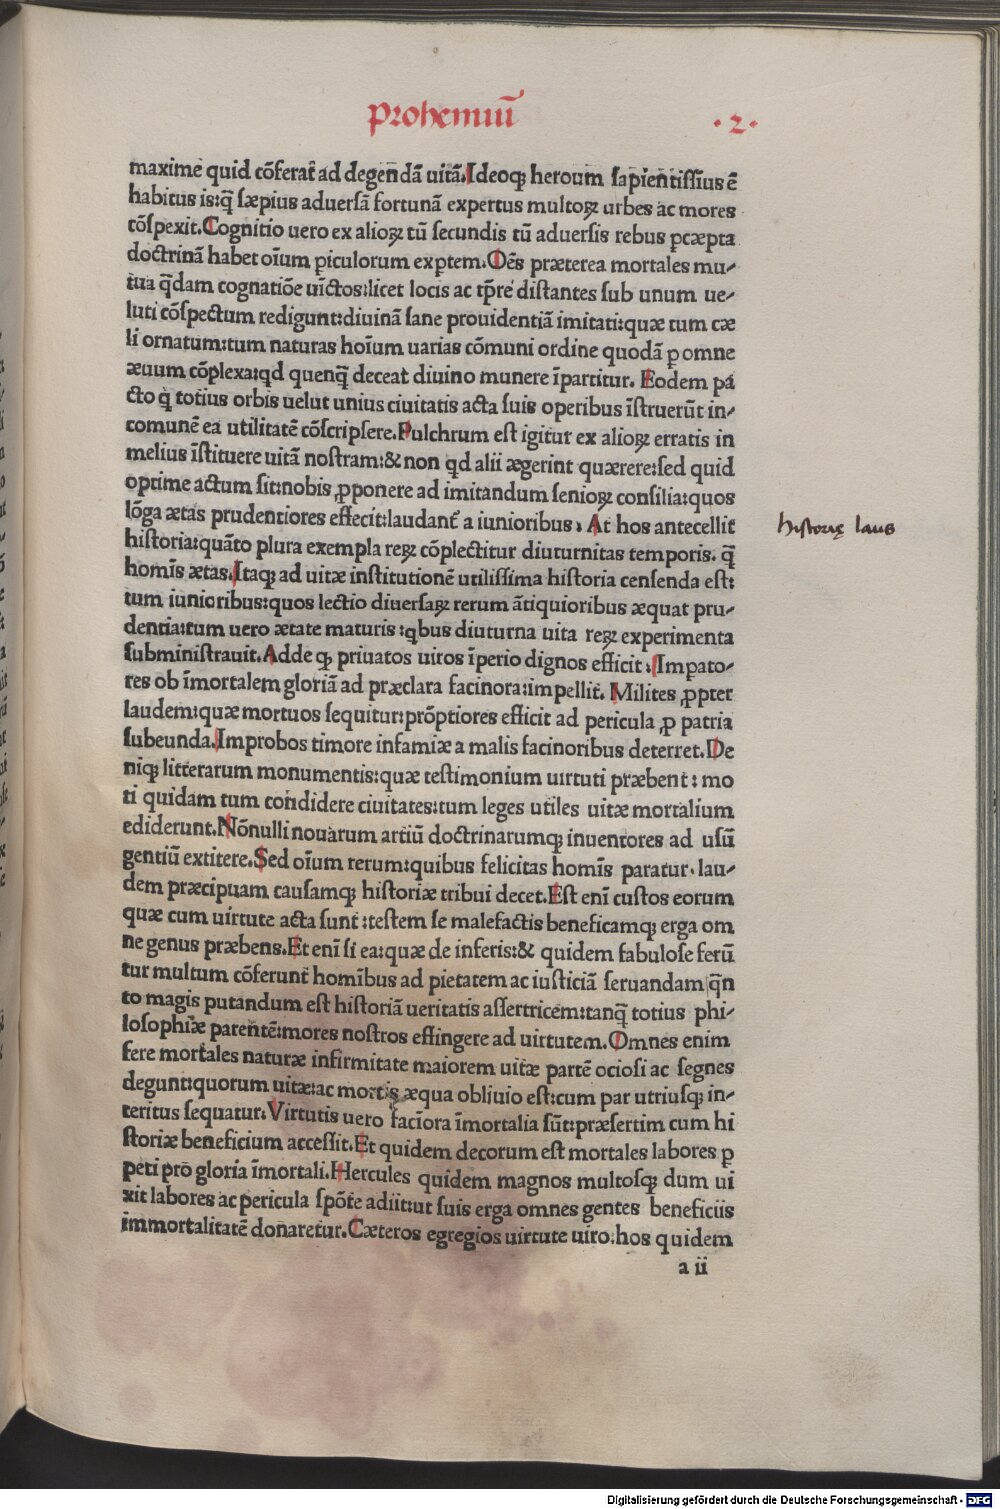 Prohemiū
·2·
maxime quid cōferat̄ ad degendā uitā. Ideoqꝫ heroum sapientissīus ē
habitus is: q̄ sæpius aduersā fortunā expertus multoꝝ urbes ac mores
cōspexit. Cognitio uero ex alioꝝ tū secundis tū aduersis rebus p̱cæpta
doctrinā habet oīum p̱iculorum exp̱tem. Oēs præterea mortales mu-
tua q̄dam cognatiōe uīctos: licet locis ac tp̄re distantes sub unum ue-
luti cōspectum redigunt: diuinā sane prouidentiā imitati: quæ tum cæ
li ornatum: tum naturas hoīum uarias cōmuni ordine quodā ꝑ omne
æuum cōplexa: qd quenq̄ deceat diuino munere īpartitur. Eodem pa
cto q̄ totius orbis uelut unius ciuitatis acta suis operibus īstruerūt in-
comunē ea utilitatē cōscripsere. Pulchrum est igitur ex alioꝝ erratis in
melius īstituere uitā nostram: & non qd alii ægerint quærere: sed quid
optime actum sit: nobis ꝓponere ad imitandum senioꝝ consilia: quos
lōga ætas prudentiores effecit: laudant̄ a iunioribus. At hos antecellit
historiæ laus
historia: quāto plura exempla reꝝ cōplectitur diuturnitas temporis. q̄
homīs ætas. Itaqꝫ ad uitæ institutionē utilissima historia censenda est:
tum iunioribus: quos lectio diuersaꝝ rerum ātiquioribus æquat pru-
dentia: tum uero ætate maturis: qbus diuturna uita reꝝ experimenta
subministrauit. Adde qꝫ priuatos uiros īperio dignos efficit: Impato-
res ob īmortalem gloriā ad præclara facinora: impellit. Milites ꝓpter
laudem: quæ mortuos sequitur: prōptiores efficit ad pericula ꝓ patria
subeunda. Improbos timore infamiæ a malis facinoribus deterret. De
niqꝫ litterarum monumentis: quæ testimonium uirtuti præbent: mo
ti quidam tum condidere ciuitates: tum leges utiles uitæ mortalium
ediderunt. Nōnulli nouarum artiū doctrinarumqꝫ inuentores ad usū
gentiū extitere. Sed oīum rerum: quibus felicitas homīs paratur. lau-
dem præcipuam causamqꝫ historiæ tribui decet. Est enī custos eorum
quæ cum uirtute acta sunt: testem se malefactis beneficamqꝫ erga om
ne genus præbens. Et enī si ea: quæ de inferis: & quidem fabulose ferū
tur multum cōferunt homībus ad pietatem ac iusticiā seruandam q̄n
to magis putandum est historiā ueritatis assertricem: tanq̄ totius phi-
losophiæ parentē: mores nostros effingere ad uirtutem. Omnes enim
fere mortales naturæ infirmitate maiorem uitæ partē ociosi ac segnes
degunt: quorum uitæ: ac mortis æqua obliuio est: cum par utriusqꝫ in-
teritus sequatur. Virtutis uero facīora īmortalia sūt: præsertim cum hi
storiæ beneficium accessit. Et quidem decorum est mortales labores ꝑ
peti pro gloria īmortali. Hercules quidem magnos multosqꝫ dum ui
xit labores ac pericula spōte adiit: ut suis erga omnes gentes beneficiis
immortalitatē donaretur. Cæteros egregios uirtute uiro: hos quidem
a ii
Digitalisierung gefördert durch die Deutsche Forschungsgemeinschaft - DFG